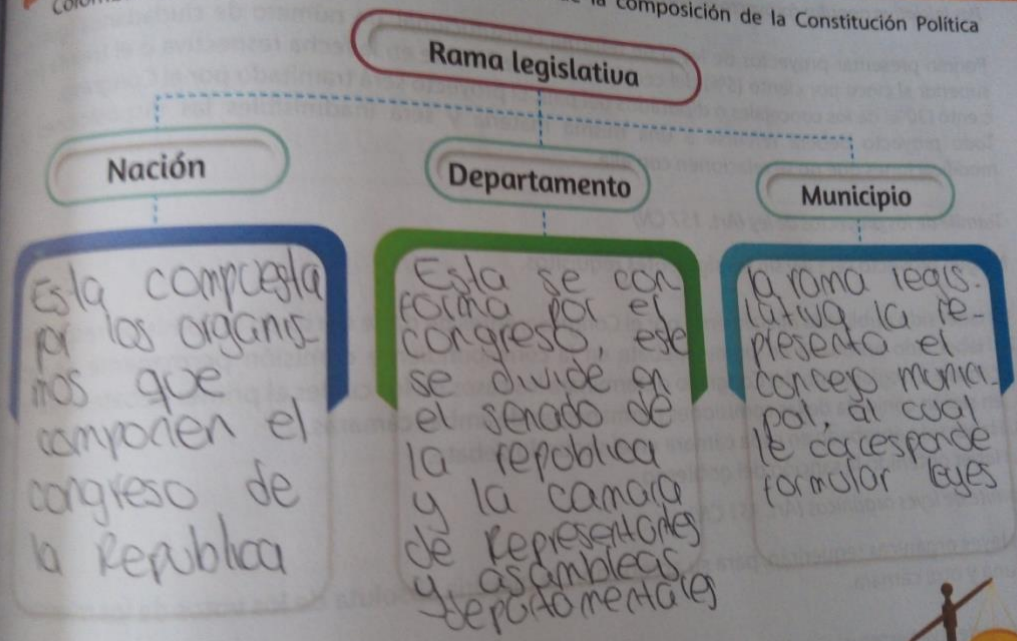 la composición de la Constitución Política
Rama legislativa
Nación
Departamento
Municipio
Esta compuesta
por los organis
mos que
componen el
congreso de
la Republica
Esta se con
forma por el
congreso, este
se divide en
el senado de
la republica
y la camara
de Representantes
y asambleas
departamentales
la rama legis-
lativa la re-
presenta el
concejo munici-
pal, al cual
le corresponde
formular leyes